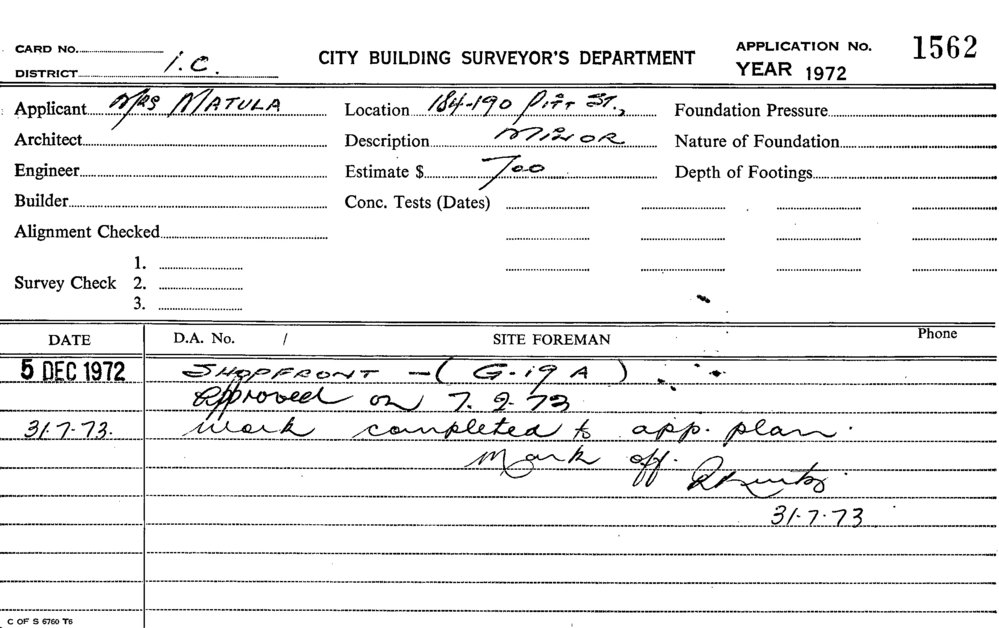 CARD No.
DISTRICT I.C.
CITY BUILDING SURVEYOR'S DEPARTMENT
APPLICATION No. 1562
YEAR 1972
Applicant Mrs MATULA Location 184-190 PITT ST., Foundation Pressure
Architect Description MINOR Nature of Foundation
Engineer Estimate $ 700 Depth of Footings
Builder Conc. Tests (Dates)
Alignment Checked
1.
Survey Check 2.
3.
DATE D.A. No. / SITE FOREMAN Phone
5 DEC 1972 SHOPFRONT - ( G.19 A )
Approved on 7.2.73
31.7.73. Work completed to app. plan.
Mark off.
31.7.73
C OF S 6760 T6